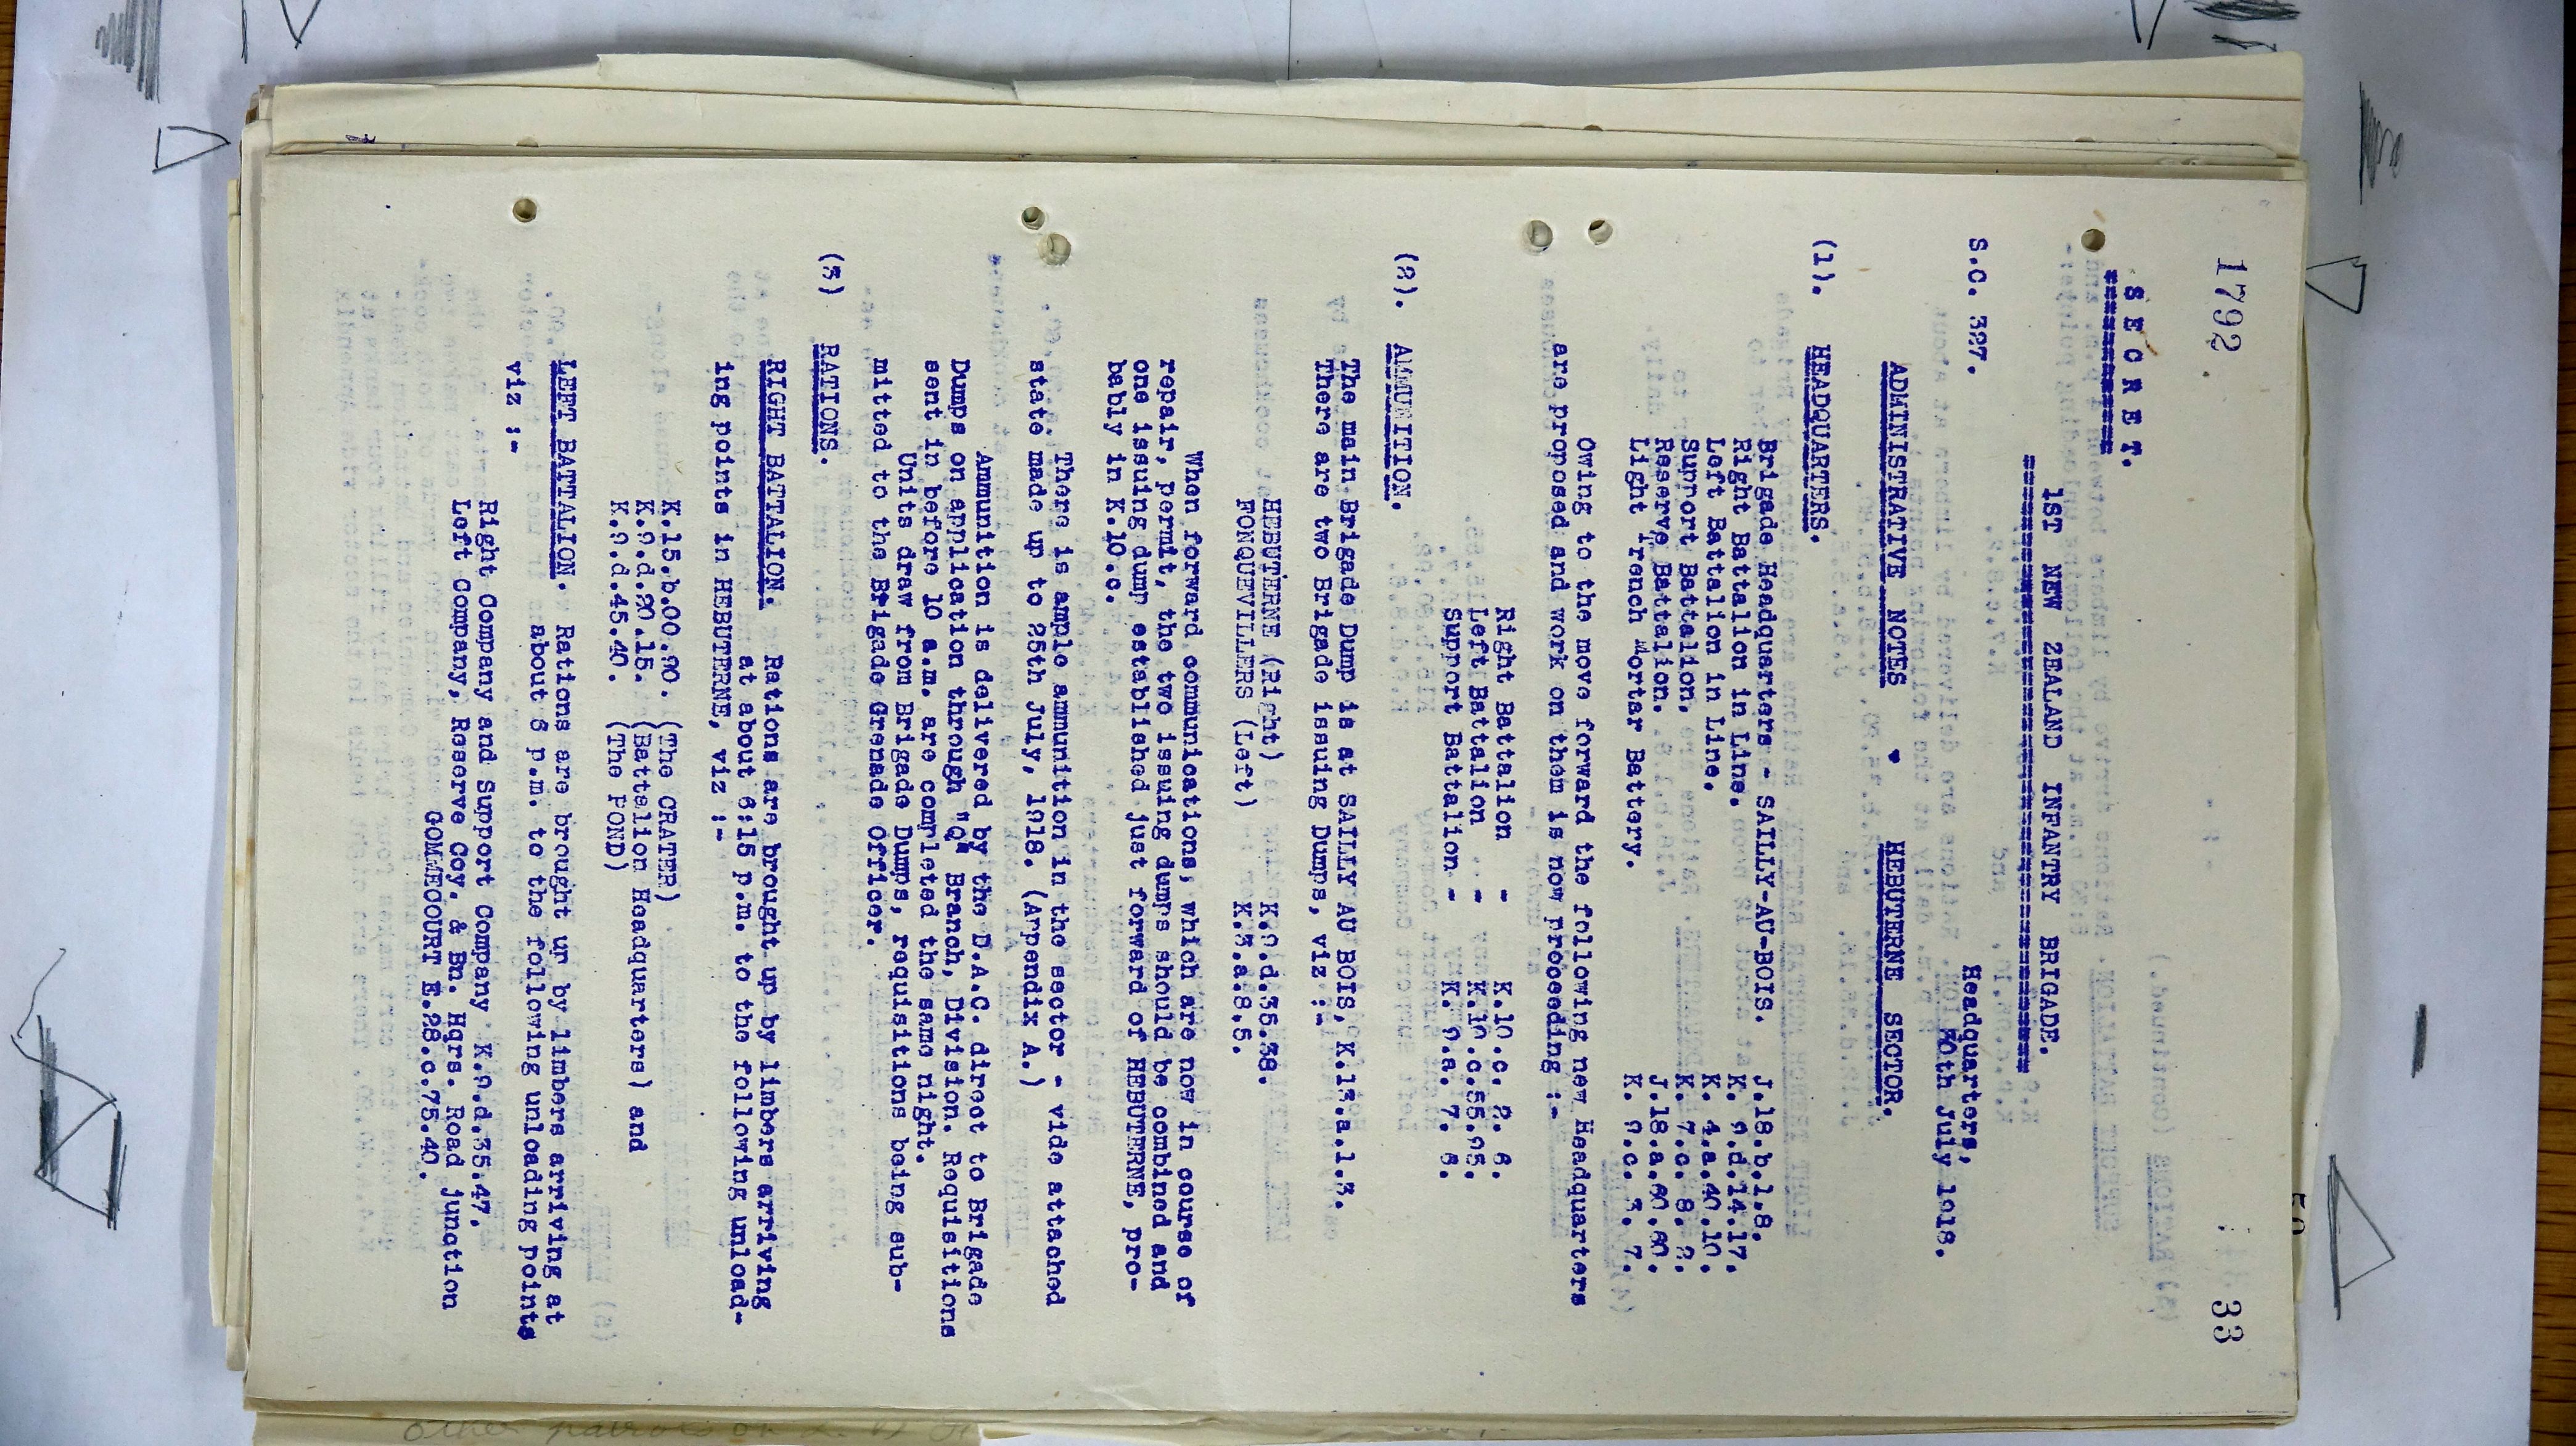 1792
33
S E C R E T.
1ST NEW ZEALAND INFANTRY BRIGADE.
S.C. 327.
Headquarters,
30th July 1918.
ADMINISTRATIVE NOTES - HEBUTERNE SECTOR.
(1). HEADQUARTERS.
Brigade Headquarters - SAILLY-AU-BOIS. J.18.b.1.8.
Right Battalion in Line. K. 9.d.14.17.
Left Battalion in Line. K. 4.a.40.10.
Support Battalion. K. 7.c. 8. 2.
Reserve Battalion. J.18.a.60.60.
Light Trench Mortar Battery. K. 9.c. 3. 7.
Owing to the move forward the following new Headquarters
are proposed and work on them is now proceeding :-
Right Battalion - K.10.c. 2. 6.
Left Battalion - K.10.c.55.95.
Support Battalion - K. 9.a. 7. 6.
(2). AMMUNITION.
The main Brigade Dump is at SAILLY AU BOIS, K.13.a.1.3.
There are two Brigade issuing Dumps, viz :-
HEBUTERNE (Right) K.9.d.35.38.
FONQUEVILLERS (Left) - K.3.a.8.5.
When forward communications, which are now in course of
repair, permit, the two issuing dumps should be combined and
one issuing dump established just forward of HEBUTERNE, pro-
bably in K.10.c.
There is ample ammunition in the sector - vide attached
state made up to 25th July, 1918. (Appendix A.)
Ammunition is delivered by the D.A.C. direct to Brigade
Dumps on application through "Q" Branch, Division. Requisitions
sent in before 10 a.m. are completed the same night.
Units draw from Brigade Dumps, requisitions being sub-
mitted to the Brigade Grenade Officer.
(3) RATIONS.
RIGHT BATTALION. Rations are brought up by limbers arriving
at about 6:15 p.m. to the following unload-
ing points in HEBUTERNE, viz :-
K.15.b.00.90. (The CRATER)
K.9.d.20.15. (Battalion Headquarters) and
K.9.d.45.40. (The POND)
LEFT BATTALION. Rations are brought up by limbers arriving at
about 6 p.m. to the following unloading points
viz :-
Right Company and Support Company K.9.d.35.47.
Left Company, Reserve Coy. & Bn. Hqrs. Road junction
GOMMECOURT E.28.c.75.40.